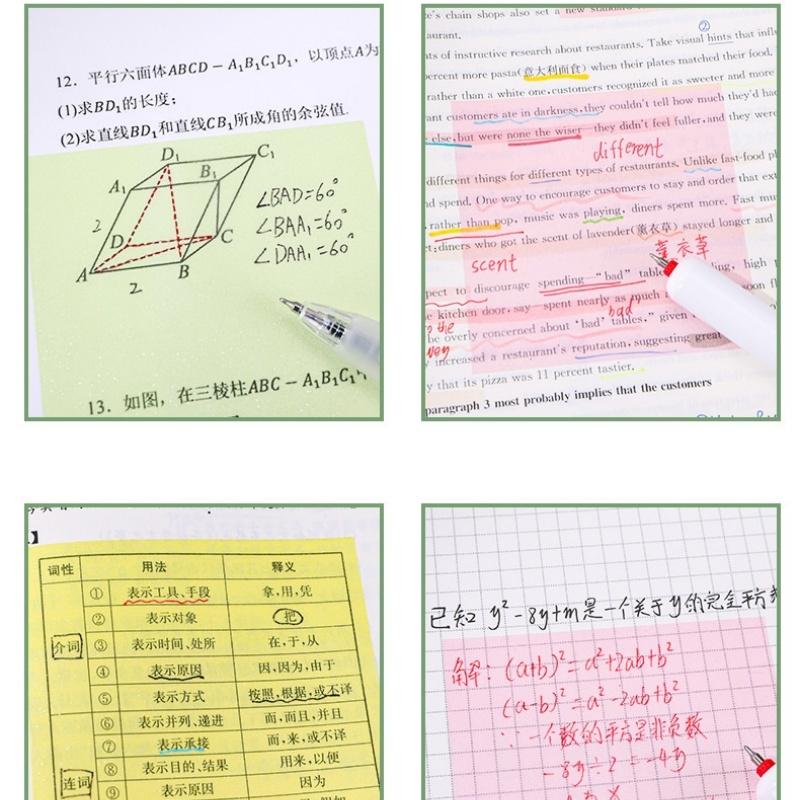 12. 平行六面体ABCD-A₁B₁C₁D₁, 以顶点A为
(1)求BD₁的长度;
(2)求直线BD₁和直线CB₁所成角的余弦值.
D₁
C₁
A₁
B₁
2
D
C
A
B
2
∠BAD=60°
∠BAA₁=60°
∠DAA₁=60°
13. 如图, 在三棱柱ABC-A₁B₁C₁
's chain shops also set a new
aurant.
②
ts of instructive research about restaurants. Take visual hints that
percent more pasta(意大利面食) when their plates matched their food.
rather than a white one, customers recognized it as sweeter and more
ant customers ate in darkness, they couldn't tell how much they'd
else, but were none the wiser they didn't feel fuller, and they were
different
different things for different types of restaurants. Unlike fast-food
d spend. One way to encourage customers to stay and order that
rather than pop, music was playing, diners spent more. Fast
t: diners who got the scent of lavender(薰衣草) stayed longer and
scent
薰衣草
pect to discourage spending—"bad" high
e kitchen door, say spent nearly as much
bad
the
be overly concerned about "bad" tables," given
increased a restaurant's reputation, suggesting great
y that its pizza was 11 percent tastier.
paragraph 3 most probably implies that the customers
】
词性 用法 释义
介词
① 表示工具、手段 拿,用,凭
② 表示对象 把
③ 表示时间、处所 在,于,从
④ 表示原因 因,因为,由于
⑤ 表示方式 按照,根据,或不译
连词
⑥ 表示并列、递进 而,而且,并且
⑦ 表示承接 而,来,或不译
⑧ 表示目的、结果 用来,以便
⑨ 表示原因 因为
已知 y²-8y+m是一个关于y的完全平方
解: (a+b)²=a²+2ab+b²
(a-b)²=a²-2ab+b²
∵一个数的平方是非负数
-8y÷2=-4y